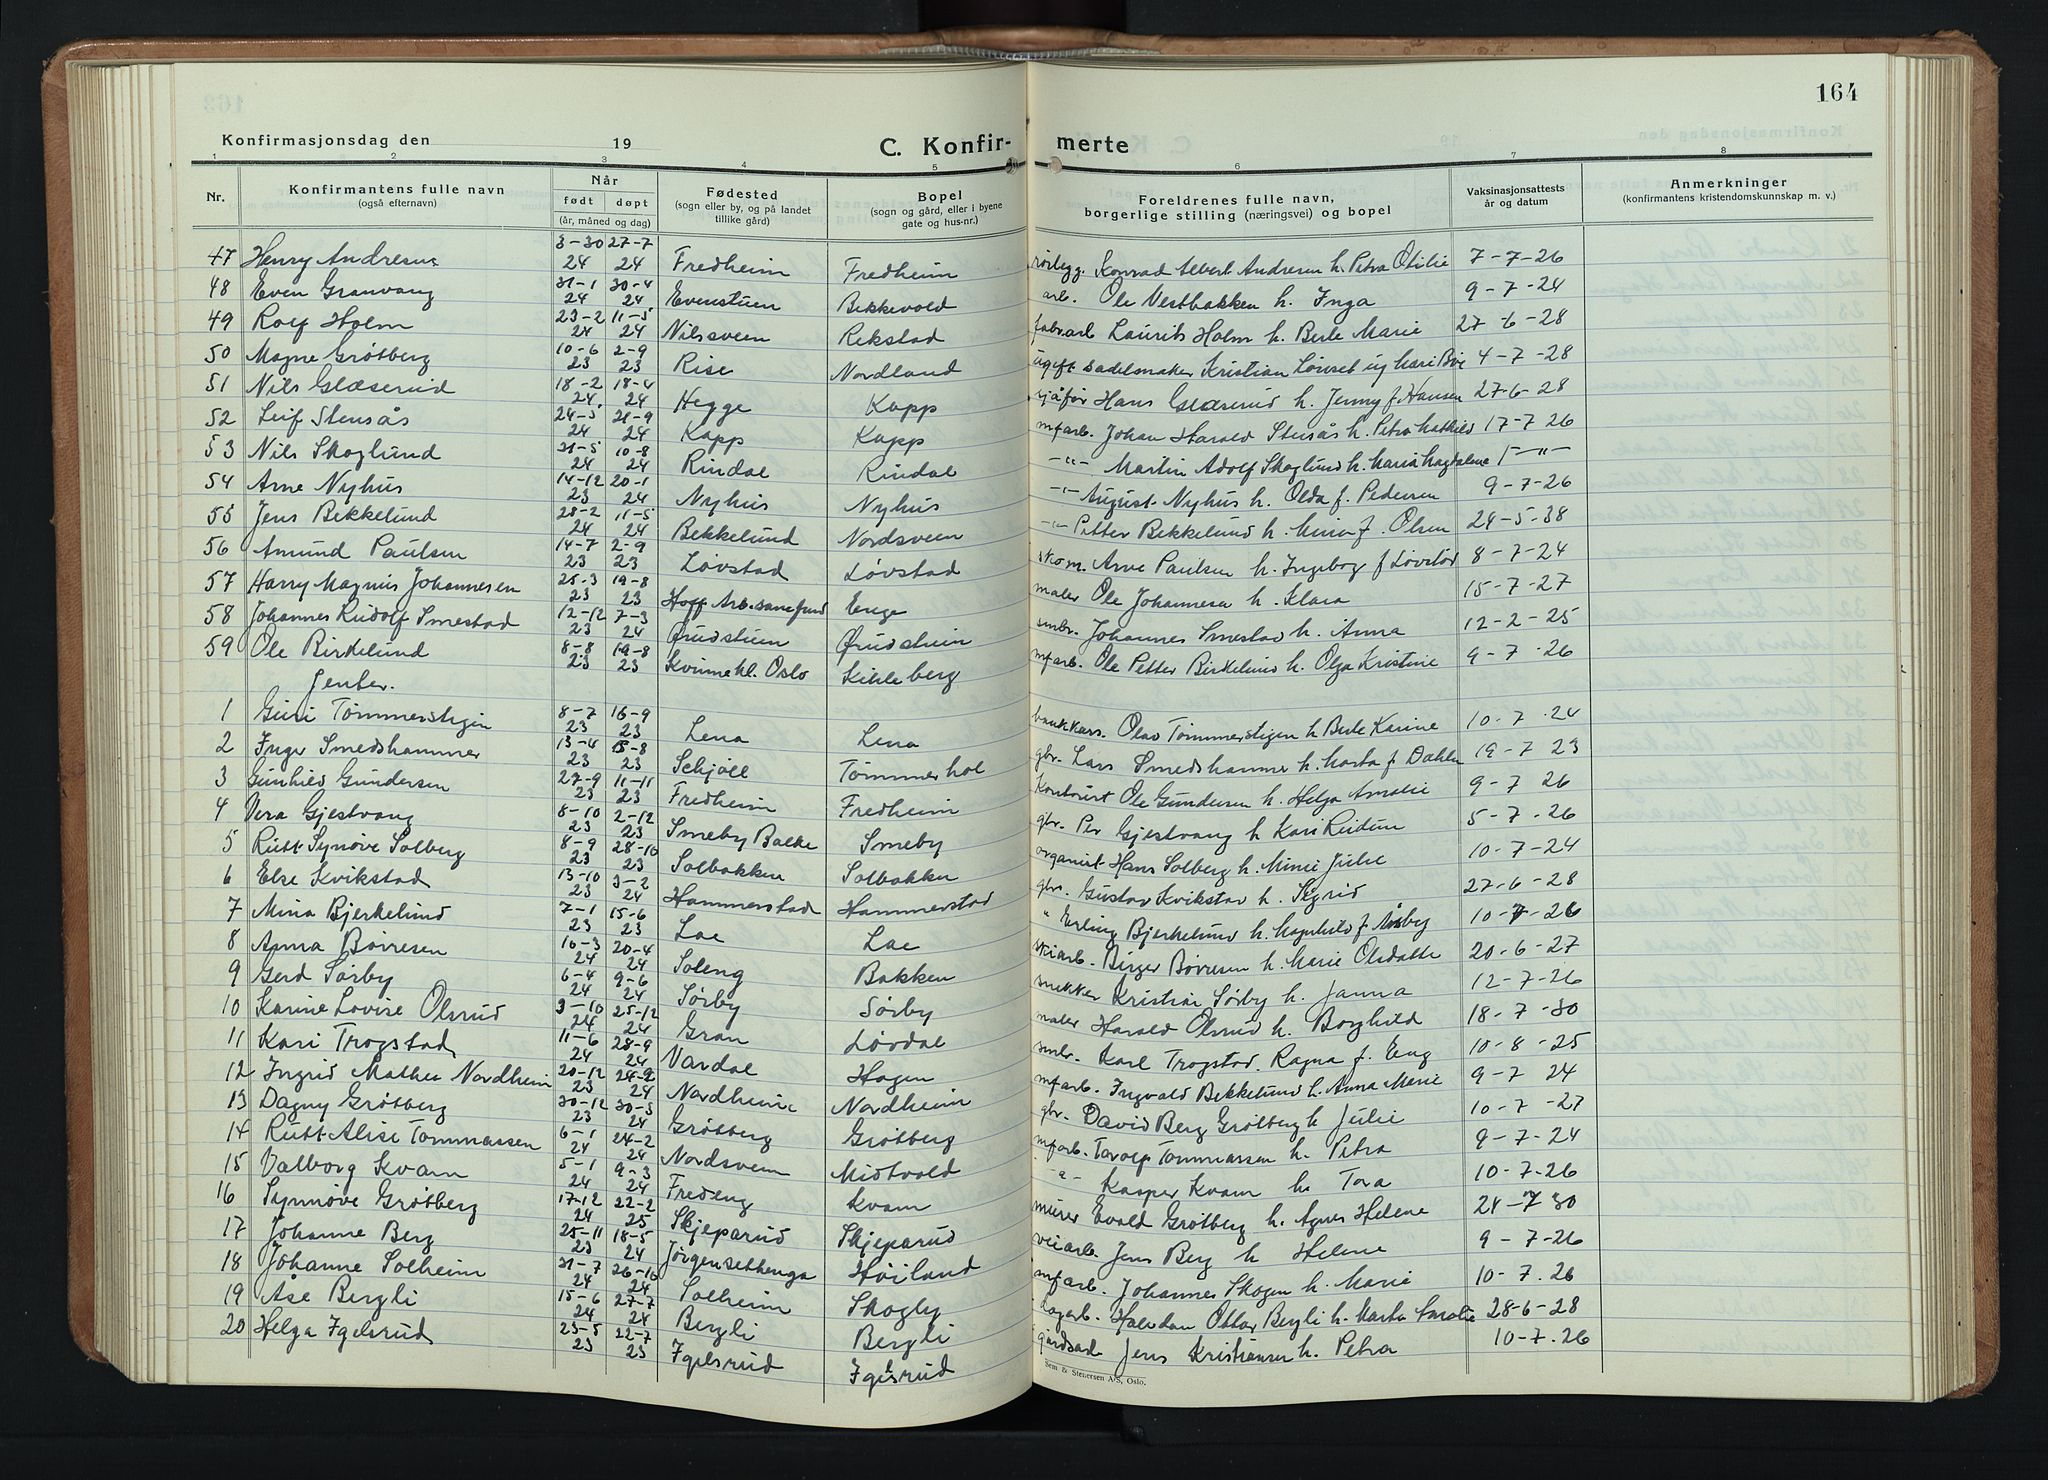 164
Konfirmasjonsdag den 19
C. Konfir- merte
1 2 3 4 5 6 7 8
Nr.
Konfirmantens fulle navn
(også efternavn)
Når
født døpt
(år, måned og dag)
Fødested
(sogn eller by, og på landet
tillike gård)
Bopel
(sogn og gård, eller i byene
gate og hus-nr.)
Foreldrenes fulle navn,
borgerlige stilling (næringsvei) og bopel
Vaksinasjonsattests
år og datum
Anmerkninger
(konfirmantens kristendomskunnskap m. v.)
47 Henry Andresen 3-30 24 27-7 24 Fredheim Fredheim rørlegg. Konrad Albert Andresen h. Petra Otilie 7-7-26
48 Even Granvang 31-1 24 30-4 24 Evenstuen Bekkevold arb. Ole Vestbakken h. Inga 9-7-24
49 Rolf Holm 23-2 24 11-5 24 Nilsveen Rekstad fabr.arb Laurits Holm h. Berle Marie 27-6-28
50 Magne Grøtberg 10-6 23 2-9 23 Rise Nordland ugift sadelmaker Kristian Løvset ug Mari 4-7-28
51 Nils Glæserud 18-2 24 18-4 24 Hegge Kapp sjåfør Hans Glæserud h. Jenny f. Hansen 27-6-28
52 Leif Stensås 24-5 24 21-9 24 Kapp Kapp mfarb. Johan Harald Stensås h. Petra Mathild 17-7 26
53 Nils Skoglund 31-5 24 10-8 24 Rindal Rindal -"- Martin Adolf Skoglund h. Maria Magdalene -"-
54 Arne Nyhus 14-12 23 20-1 24 Nyhus Nyhus -"- August Nyhus h. Olda f. Pedersen 9-7-26
55 Jens Bekkelund 28-2 24 11-5 24 Bekkelund Nordsveen -"- Petter Bekkelund h. Mina f. Olsen 24-5-38
56 Amund Paulsen 14-7 23 2-9 23 Løvstad Løvstad skom. Arne Paulsen h. Ingeborg f Løvstad 8-7-24
57 Harry Magnus Johannesen 25-3 23 19-8 23 Hoff Enge maler Ole Johannesen h. Klara 15-7-27
58 Johannes Rudolf Smestad 12-12 23 7-3 24 Ørudstuen Ørudstuin smbr. Johannes Smestad h. Anna 12-2-25
59 Ole Birkelund 8-8 23 19-8 23 Kvinnekl. Oslo Kihleberg mfarb. Ole Petter Birkelund h. Olga Kristine 9-7-26
Jenter.
1 Guri Tømmerstigen 8-7 23 16-9 23 Lena Lena bankkass. Olav Tømmerstigen h Berle Karine 10-7-24
2 Inger Smedshammer 13-4 23 15-8 23 Schjøll Tømmerhol gbr. Lars Smedshammer h. Marta f. Dahlen 19-7 23
3 Gunhild Gundersen 27-9 23 11-11 23 Fredheim Fredheim Kontorist Ole Gundersen h. Helga Amalie 9-7 26
4 Vera Gjestvang 8-10 23 2-12 23 Smeby Balke Smeby gbr. Per Gjestvang h Kari Reidun 5-7-26
5 Rutt Synøve Solberg 8-9 23 28-10 23 Solbakken Solbakken organist Hans Solberg h. Mimi Julie 10-7-24
6 Else Kvikstad 13-10 23 3-2 24 Hammerstad Hammerstad gbr. Gustav Kvikstad h. Sigrid 27-6-28
7 Mina Bjerkelund 7-1 23 15-6 23 Lae Lae " Erling Bjerkelund h. Magnhild f. Åsby 10-7-26
8 Anna Børresen 16-3 24 20-4 24 Soleng Bakken skiarb. Birger Børresen h. Marie Olsdatte 20-6-27
9 Gerd Sørby 6-4 24 9-6 24 Sørby Sørby snekker Kristian Sørby h. Janna 12-7-26
10 Karine Lovise Olsrud 3-10 24 25-12 24 Gran Løvdal maler Harald Olsrud h. Borghild 18-7-30
11 Kari Trogstad 11-6 24 28-9 24 Vardal Hagen smbr. Karl Trogstad. Ragna f. Eng 10-8-25
12 Ingrid Mathea Nordheim 20-12 23 24-2 24 Nordheim Nordheim mfarb. Ingvald Bekkelund h. Anna Marie 9-7 24
13 Dagny Grøtberg 30-12 23 30-3 24 Grøtberg Grøtberg gbr. David Berg Grøtberg h Julie 10-7-27
14 Rutt Alise Tommassen 6-1 24 24-2 24 Nordsveen Midtvold mfarb. Torolf Tommassen h. Petra 9-7-24
15 Valborg Kvam 5-1 24 9-3 24 Fredeng Kvam -"- Kasper Kvam h. Tora 10-7-26
16 Synnøve Grøtberg 17-12 24 22-2 25 Skjeparud Skjeparud murer Evald Grøtberg h. Agnes Helene 24-7 30
17 Johanne Berg 25-11 23 18-5 24 Jørgensethenga Høiland veiarb. Jens Berg h Helene 9-7-26
18 Johanne Solheim 31-7 24 26-10 24 Solheim Skogly mfarb. Johannes Skogen h. Marie 10-7.26
19 Åse Bergli 15-6 24 27-7 24 Bergli Bergli Halvdan Ottar Bergli h. Marta 28-6-28
20 Helga Igelsrud 23-5 23 22-7 23 Igelsrud Igelsrud gårdsarb Jens Kristiansen h. Petra 10-7.26
Sem & Stenersen A/S, Oslo.